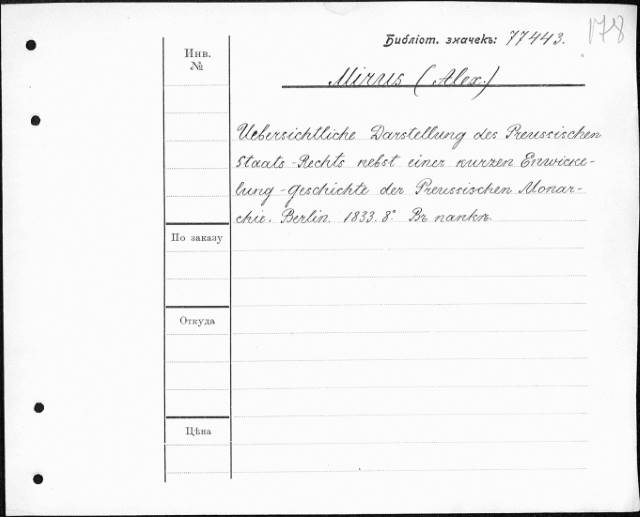 Библіот. значекъ: 77443.
178
Инв.
№
Mirus (Alex.)
Uebersichtliche Darstellung des Preussischen
Staats-Rechts nebst einer kurzen Enwicke-
lung-Geschichte der Preussischen Monar-
chie. Berlin. 1833. 8°. Въ папкѣ.
По заказу
Откуда
Цѣна